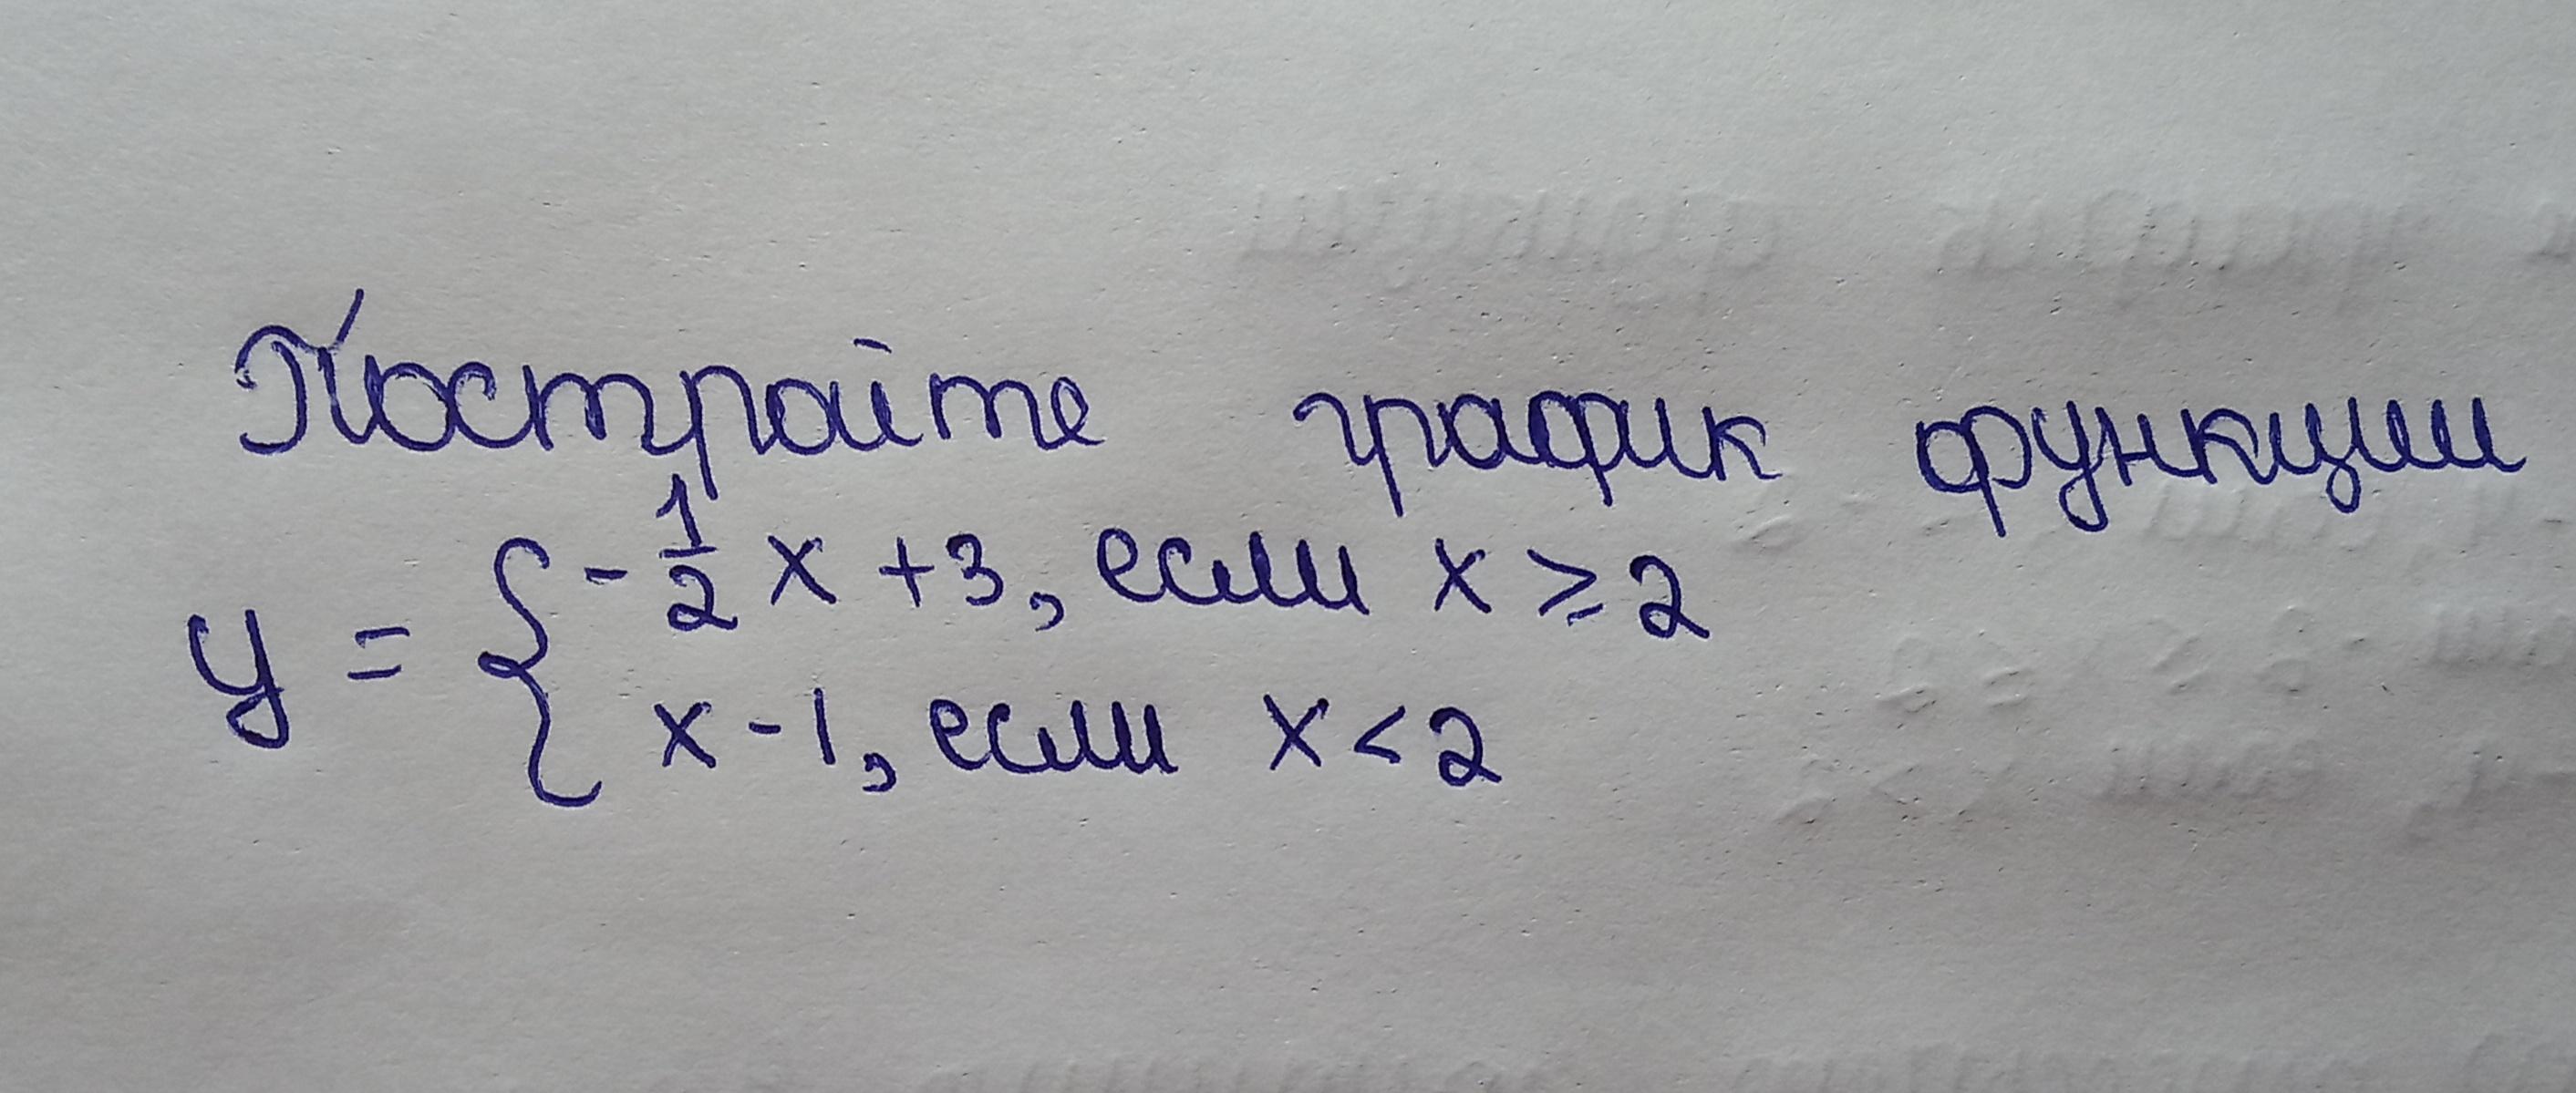 Постройте график функции
y = { -1/2 x + 3, если x ≥ 2
x - 1, если x < 2